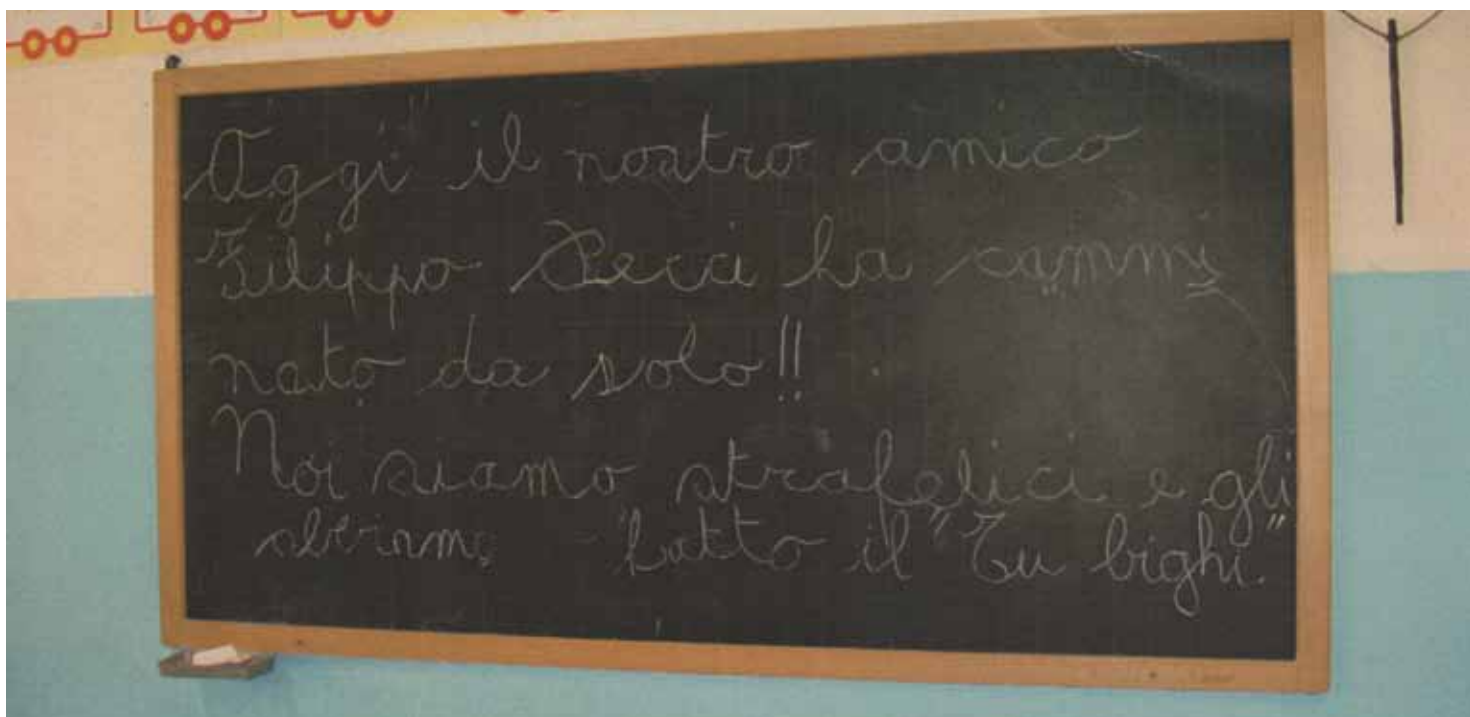 Oggi il nostro amico
Filippo ha cammi
nato da solo!!
Noi siamo strafelici e gli
fatto il "Tu bighi."